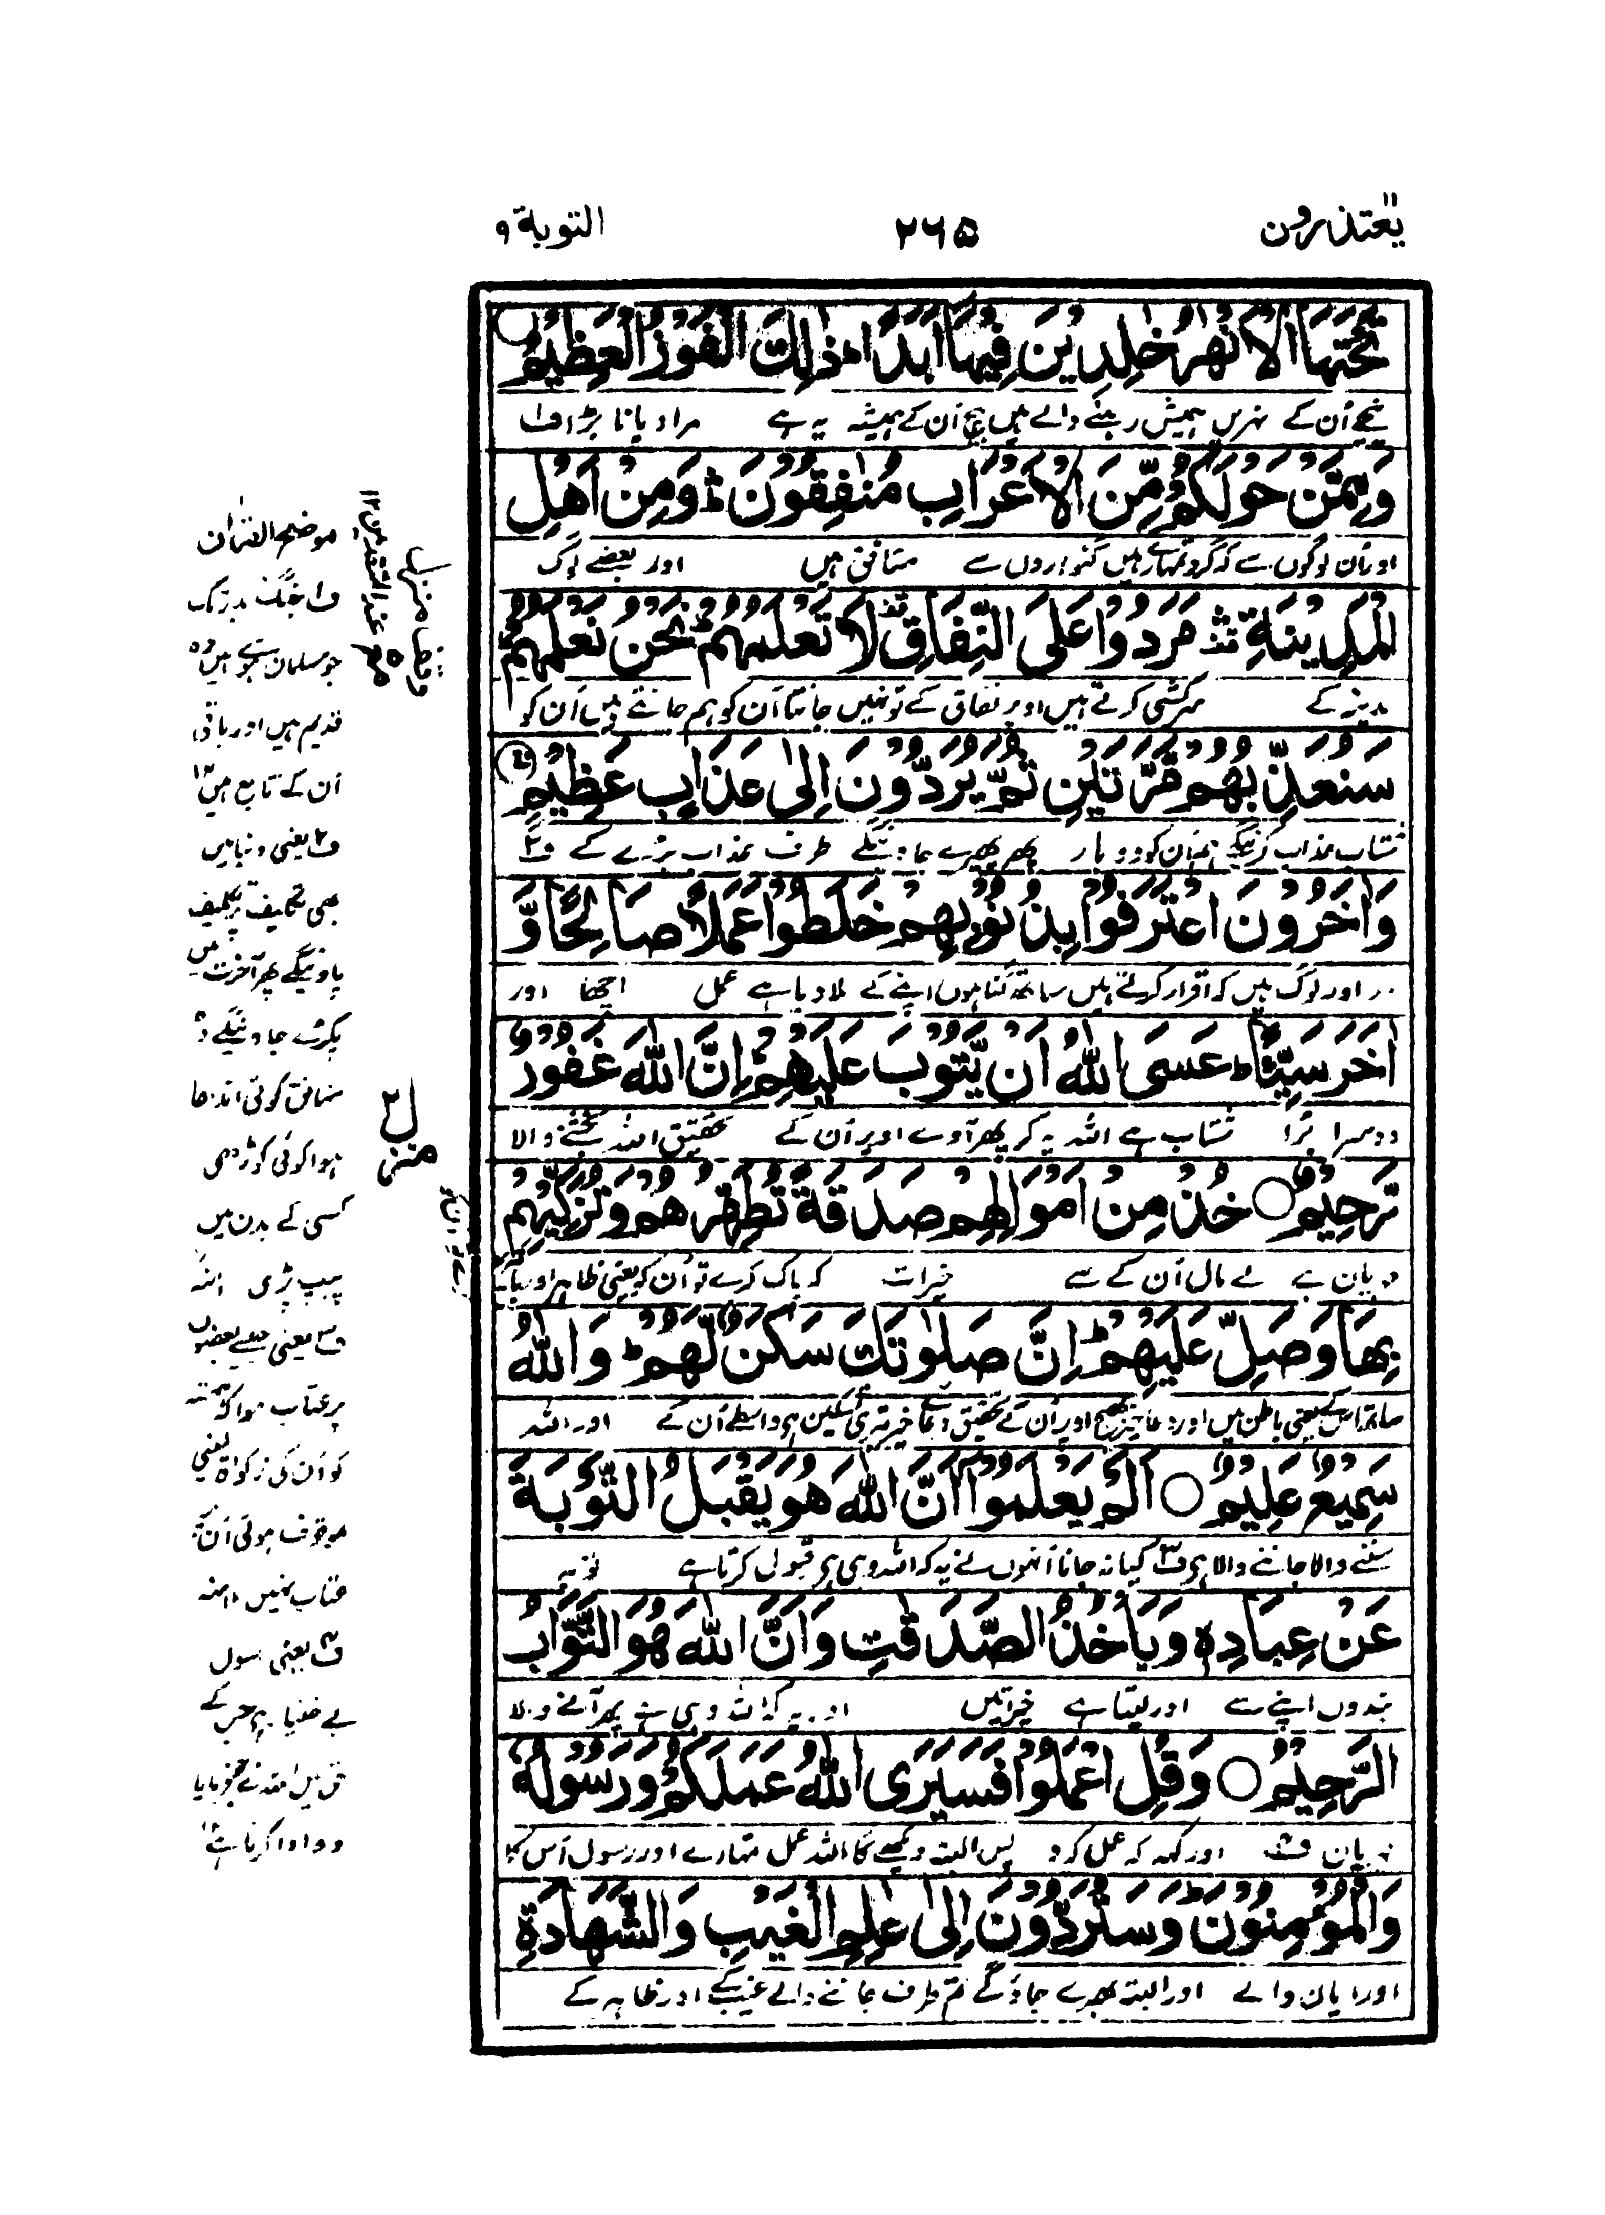 یعتذرون ۱۱
۲۶۵
التوبة ۹
تَحْتَهَا الْاَنْهٰرُ خٰلِدِیْنَ فِیْهَاۤ اَبَدًا ؕ ذٰلِكَ الْفَوْزُ الْعَظِیْمُ
نیچے اُن کے نہریں ہمیش رہنے والے ہیں بیچ اُن کے ہمیشہ یہ ہے مراد پانا بڑا ف۱
وَمِمَّنْ حَوْلَكُمْ مِّنَ الْاَعْرَابِ مُنٰفِقُوْنَ ؕ وَمِنْ اَهْلِ
اور اُن لوگوں سے کہ گرد تمہارے ہیں گنواروں سے منافق ہیں اور بعضے لوگ
الْمَدِیْنَةِ مَرَدُوْا عَلَى النِّفَاقِ لَا تَعْلَمُهُمْ ؕ نَحْنُ نَعْلَمُهُمْ ؕ
مدینہ کے سرکشی کرتے ہیں اوپر نفاق کے تو نہیں جانتا اُن کو ہم جانتے ہیں اُن کو
سَنُعَذِّبُهُمْ مَّرَّتَیْنِ ثُمَّ یُرَدُّوْنَ اِلٰى عَذَابٍ عَظِیْمٍ
شتاب عذاب کرینگے ہم اُن کو دو بار پھر پھیرے جاوینگے طرف عذاب بڑے کے ف۲
وَاٰخَرُوْنَ اعْتَرَفُوْا بِذُنُوْبِهِمْ خَلَطُوْا عَمَلًا صَالِحًا وَّ
اور لوگ ہیں کہ اقرار کرتے ہیں ساتھ گناہوں اپنے کے ملا دیا ہے عمل اچھا اور
اٰخَرَ سَیِّئًا ؕ عَسَى اللّٰهُ اَنْ یَّتُوْبَ عَلَیْهِمْ ؕ اِنَّ اللّٰهَ غَفُوْرٌ
دوسرا بُرا شتاب ہے اللہ یہ کہ پھر آوے اوپر اُن کے تحقیق اللہ بخشنے والا
رَّحِیْمٌ ○ خُذْ مِنْ اَمْوَالِهِمْ صَدَقَةً تُطَهِّرُهُمْ وَتُزَكِّیْهِمْ
مہربان ہے لے مال اُن کے سے خیرات کہ پاک کرے تو اُن کو یعنی ظاہر اور
بِهَا وَصَلِّ عَلَیْهِمْ ؕ اِنَّ صَلٰوتَكَ سَكَنٌ لَّهُمْ ؕ وَاللّٰهُ
ساتھ اس کے یعنی باطن میں اور دعا خیر بھیج اوپر اُن کے تحقیق دعاے خیر تیری تسکین ہی واسطے اُن کے اور اللہ
سَمِیْعٌ عَلِیْمٌ ○ اَلَمْ یَعْلَمُوْۤا اَنَّ اللّٰهَ هُوَ یَقْبَلُ التَّوْبَةَ
سننے والا جاننے والا ہی ف۳ کیا نہ جانا اُنہوں نے یہ کہ اللہ وہی ہی قبول کرتا ہے توبہ
عَنْ عِبَادِهٖ وَیَاْخُذُ الصَّدَقٰتِ وَاَنَّ اللّٰهَ هُوَ التَّوَّابُ
بندوں اپنے سے اور لیتا ہے خیراتیں اور یہ کہ اللہ وہی ہے پھر آنے والا
الرَّحِیْمُ ○ وَقُلِ اعْمَلُوْا فَسَیَرَى اللّٰهُ عَمَلَكُمْ وَرَسُوْلُهٗ
مہربان ف۴ اور کہہ کہ عمل کرو پس البتہ دیکھے گا اللہ عمل تمہارے اور رسول اُس کا
وَالْمُؤْمِنُوْنَ ؕ وَسَتُرَدُّوْنَ اِلٰى عٰلِمِ الْغَیْبِ وَالشَّهَادَةِ
اور ایمان والے اور البتہ پھیرے جاؤگے تم طرف جاننے والے غیب کے اور ظاہر کے
موضح القرآن
ف۱ جنگ بدر تک
جو مسلمان ہوئے ہیں وہ
قدیم ہیں اور باقی
اُن کے تابع ہیں
ف۲ یعنی دنیا میں
بھی تکلیف پر تکلیف
پاوینگے پھر آخرت میں
پکڑے جاوینگے
منافق کوئی اندھا
ہوا کوئی کوڑھی
کسی کے بدن میں
پیپ پڑی
ف۳ یعنی جیسے بعضوں
پر عتاب ہوا کہ
کو اُن کی زکوٰۃ یعنی
موقوف ہوئی اُن
عتاب نہیں
ف۴ یعنی رسول
منزل ۲